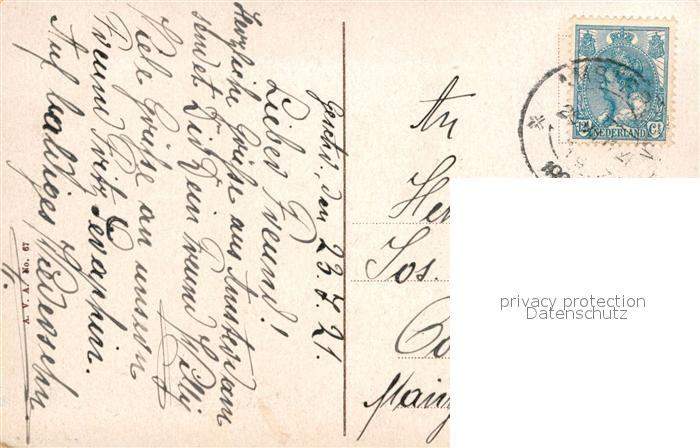 Geschr. den 23.7.21.
Lieber Freund!
Herzliche Grüße aus Amsterdam
sendet Dir Dein Freund Willy
Viele Grüße an unseren
Freund Fritz Seraphin.
Auf baldiges Wiedersehn
A. V. A. No. 67
An
Jos.
NEDERLAND
privacy protection
Datenschutz